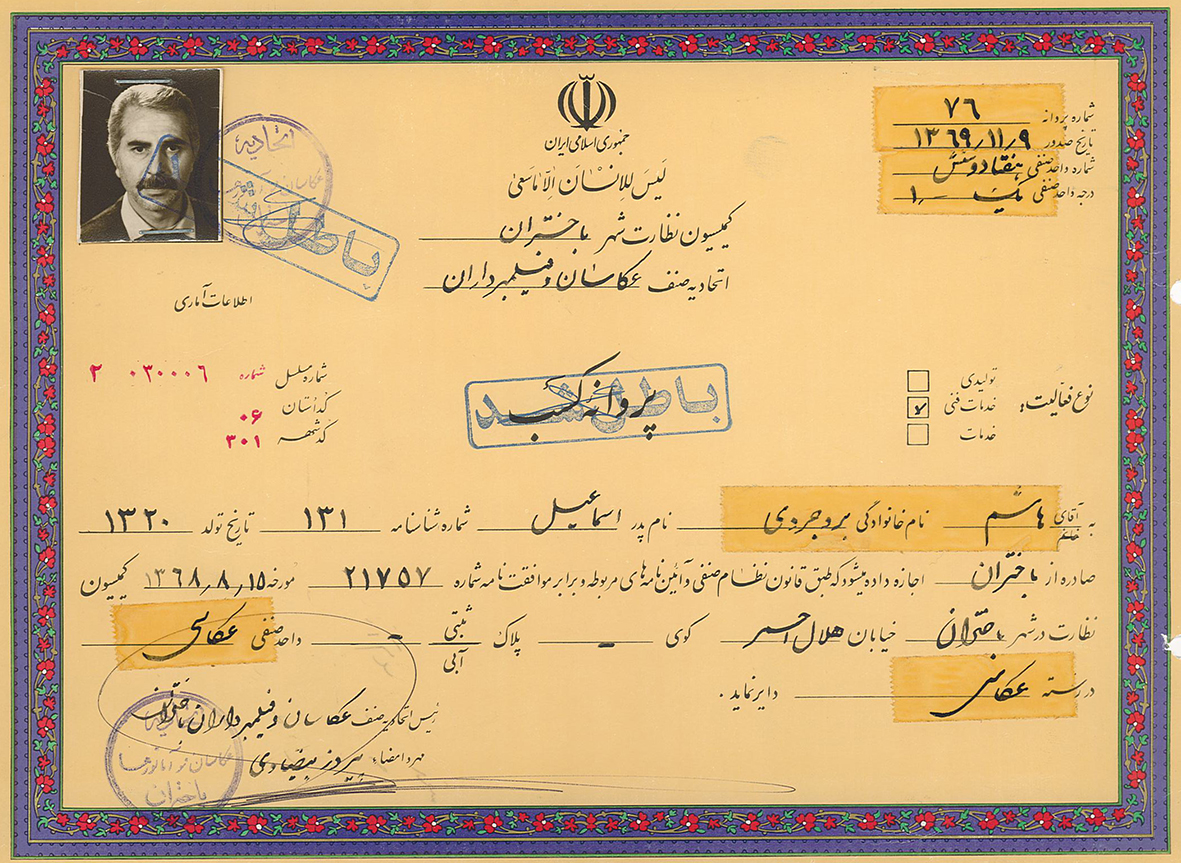 جمهوری اسلامی ایران
لَیسَ لِلاِنْسٰانِ اِلّا مٰاسَعیٰ
کمیسیون نظارت شهر باختران
اتحادیه صنف عکاسان و فیلمبرداران
شماره پروانه ۷۶
تاریخ صدور ۱۳۶۹٫۱۱٫۹
شماره واحد صنفی هفتاد و شش
درجه واحد صنفی یک ۱
اتحادیه
باطل شد
اطلاعات آماری
شماره مسلسل شماره ۰۳۰۰۰۶ ۲
کد استان ۰۶
کد شهر ۳۰۱
پروانه کسب
باطل شد
نوع فعالیت:
تولیدی
خدمات فنی
خدمات
به آقای خانم هاشم نام خانوادگی بروجردی نام پدر اسماعیل شماره شناسنامه ۱۳۱ تاریخ تولد ۱۳۲۰
صادره از باختران اجازه داده میشود که طبق قانون نظام صنفی و آئین نامه های مربوطه و برابر موافقت نامه شماره ۲۱۷۵۷ مورخه ۱۳۶۸٫۸٫۱۵ کمیسیون
نظارت در شهر باختران خیابان هلال احمر کوی - پلاک ثبتی آبی - واحد صنفی عکاسی
در رسته عکاسی دایر نماید.
رئیس اتحادیه صنف عکاسان و فیلمبرداران باختران
مهر و امضاء
باختران